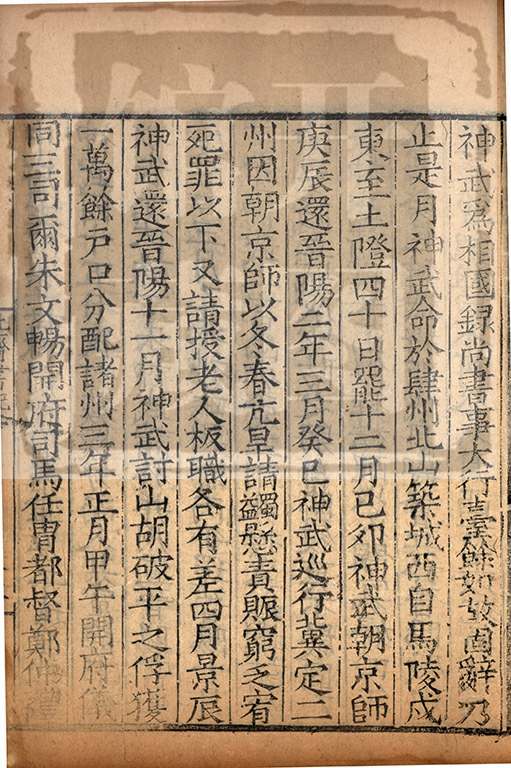 神武爲相國録尚書事大行臺餘如故固辭乃
止是月神武命於肆州北山築城西自馬陵戍
東至土隥四十日罷十二月己卯神武朝京師
庚辰還晉陽二年三月癸巳神武巡行冀定二
州因朝京師以冬春亢旱請蠲懸責賑窮乏宥
死罪以下又請授老人板職各有差四月景辰
神武還晉陽十一月神武討山胡破平之俘獲
一萬餘戸口分配諸州三年正月甲午開府儀
同三司爾朱文暢開府司馬任胄都督鄭仲禮